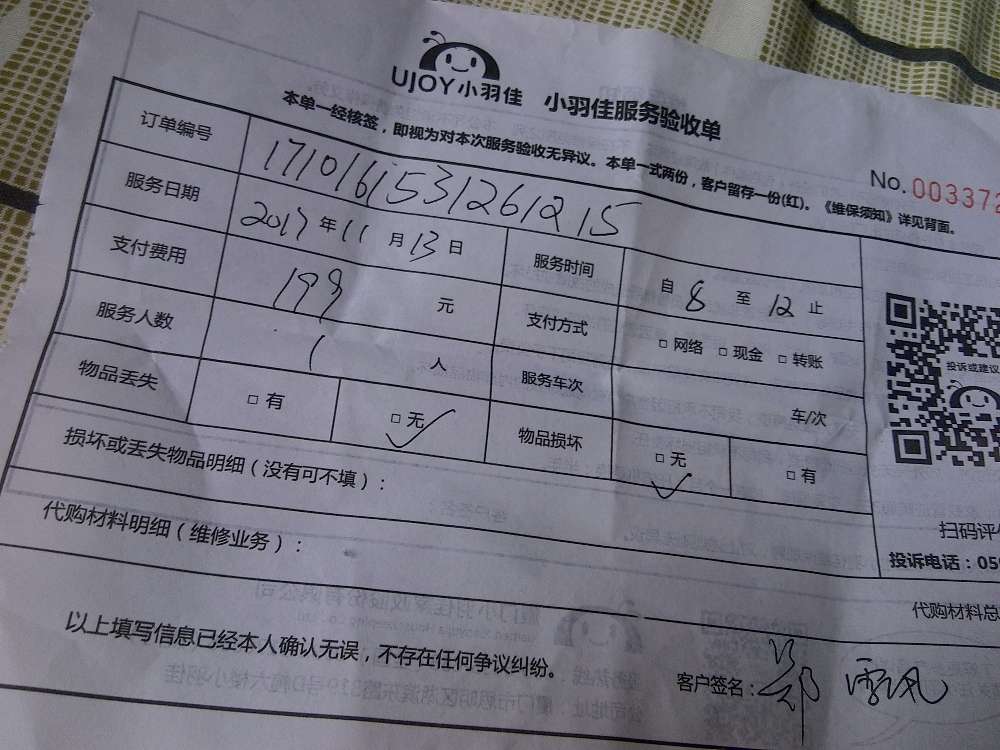 UJOY小羽佳 小羽佳服务验收单
本单一经核签，即视为对本次服务验收无异议。本单一式两份，客户留存一份(红)。《维保须知》详见背面。
No. 003372
订单编号 17101615312612 15
服务日期 2017 年 11 月 13 日 服务时间 自 8 至 12 止
支付费用 199 元 支付方式 □ 网络 □ 现金 □ 转账
服务人数 1 人 服务车次 车/次
物品丢失 □ 有 □ 无 ✓ 物品损坏 □ 无 ✓ □ 有
损坏或丢失物品明细（没有可不填）：
代购材料明细（维修业务）：
投诉或建议
扫码评
投诉电话：05
代购材料总
以上填写信息已经本人确认无误，不存在任何争议纠纷。
客户签名：郑雪风